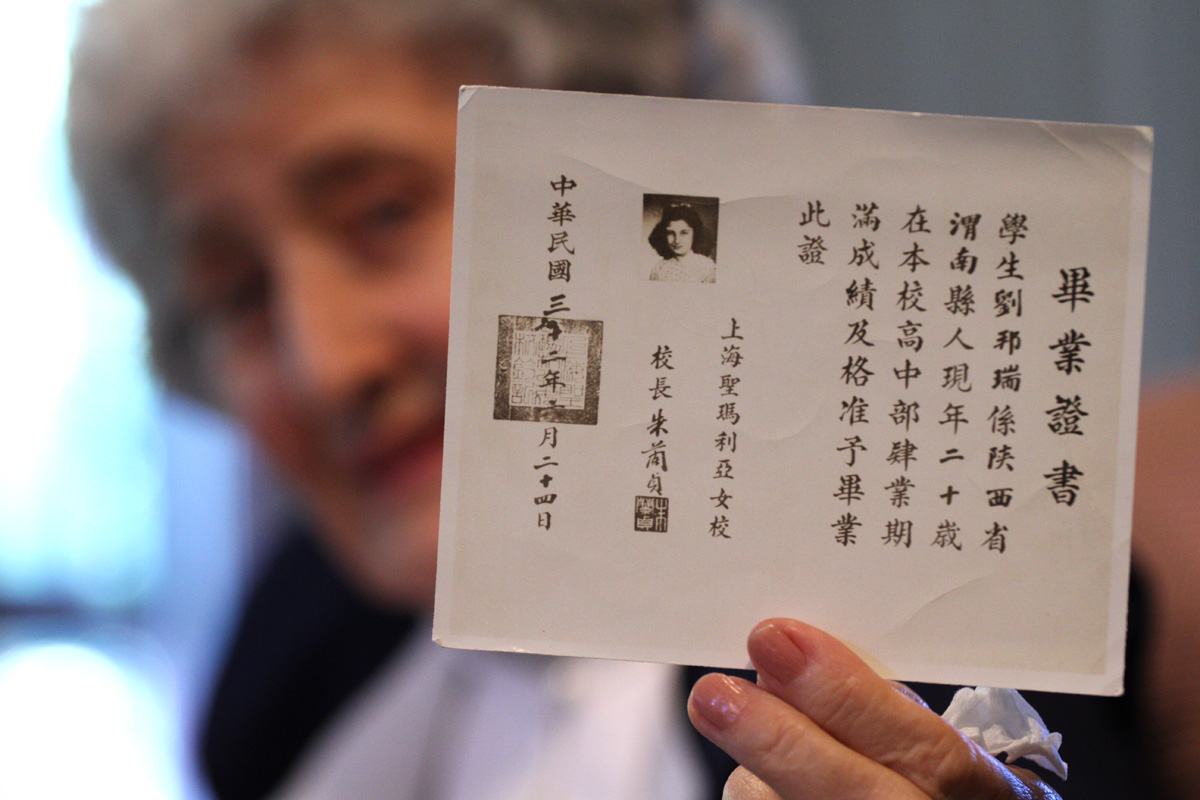 畢業證書
學生劉邦瑞係陝西省
渭南縣人現年二十歲
在本校高中部肄業期
滿成績及格准予畢業
此證
上海聖瑪利亞女校
校長 朱蘭貞
中華民國三十二年 月二十四日